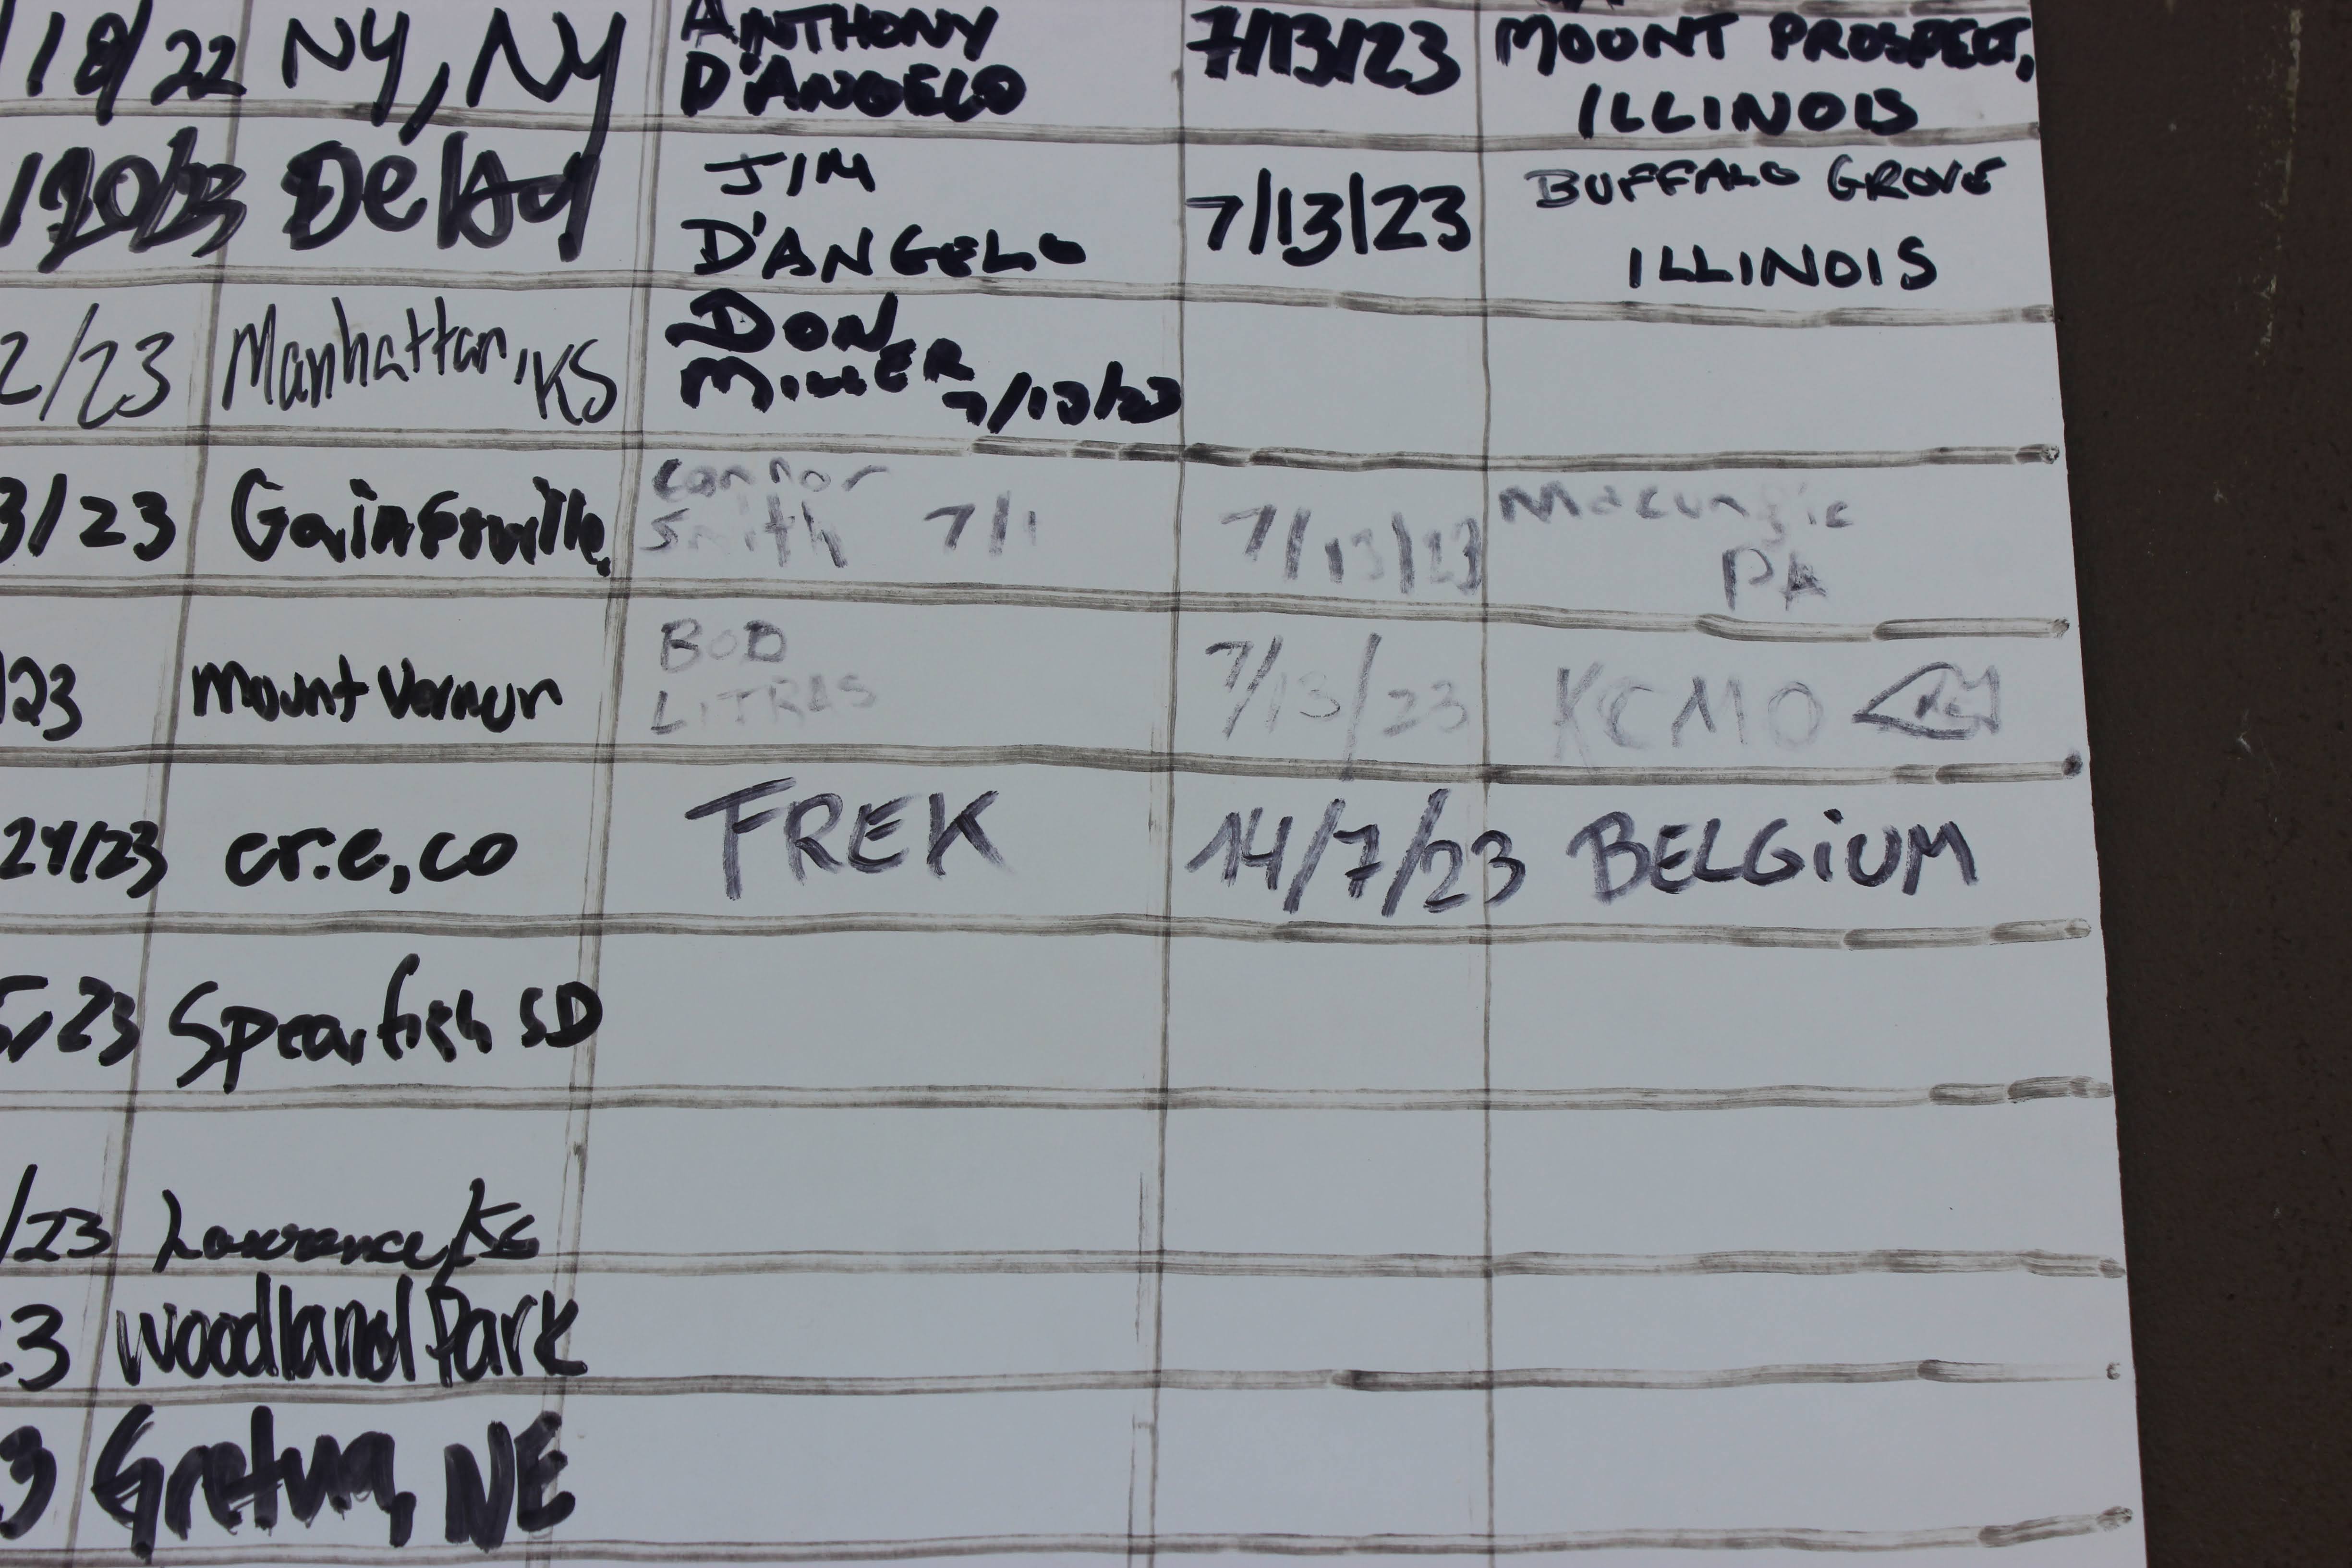 /18/22 NY, NY
ANTHONY
D'ANGELO
7/13/23
MOUNT PROSPECT,
ILLINOIS
JIM
D'ANGELO
7/13/23
BUFFALO GROVE
ILLINOIS
2/23 Manhattan, KS
DON
MILLER
3/23
Connor
Smith 7/1
7/13/23
Macungie
PA
/23 Mount Vernon
BOB
7/13/23
KCMO
24/23
FREK
14/7/23
BELGiUM
5/23 Spearfish SD
/23 Lawrence, KS
3 Woodland Park
3 Gretna, NE